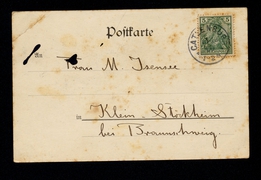 Postkarte
An
Frau M Isensee
in Klein-Stöckheim
bei Braunschweig.